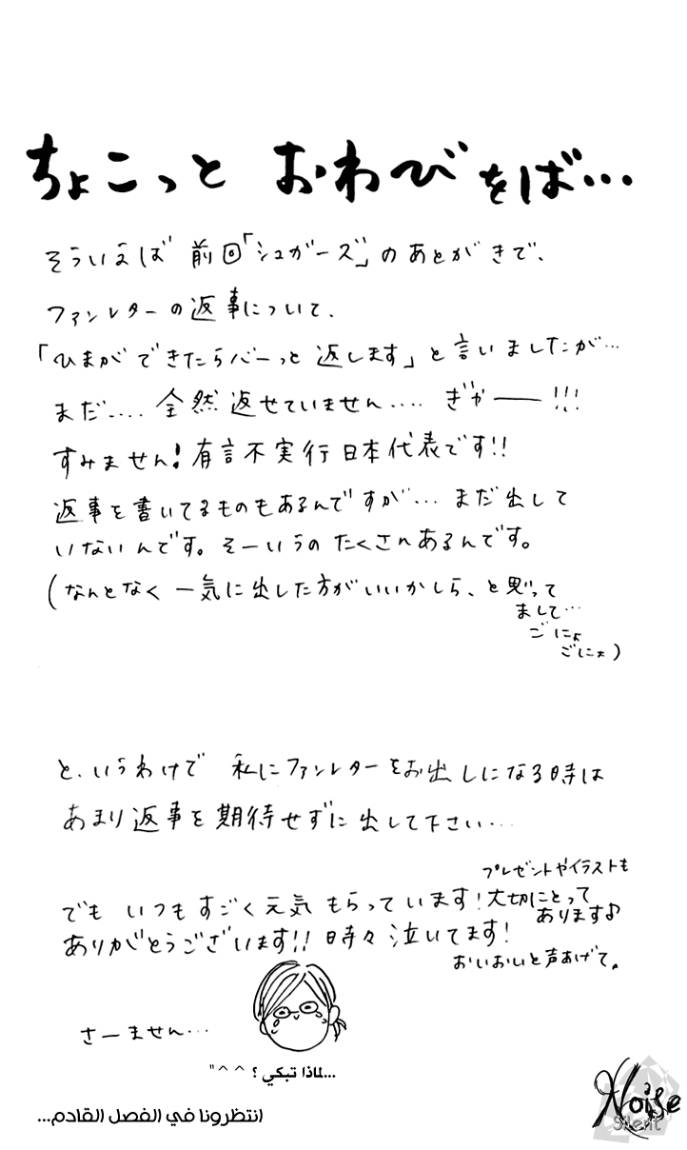 ちょこっと おわびをば…
そういえば 前回「シュガーズ」のあとがきで、
ファンレターの返事について、
「ひまができたらバーっと返します」と言いましたが…
まだ…. 全然返せていません…. ぎゃー!!!
すみません!有言不実行日本代表です!!
返事を書いてるものもあるんですが… まだ出して
いないんです。そーいうの たくさんあるんです。
(なんとなく 一気に出した方がいいかしら、と思って
まして…
ごにょ
ごにょ)
と、いうわけで 私にファンレターをお出しになる時は
あまり返事を期待せずに出して下さい…
でも いつもすごく元気 もらっています!
プレゼントやイラストも
大切にとって
あります♪
ありがとうございます!! 時々泣いてます!
おいおいと声あげて。
さーません…
...لماذا تبكي ؟ ^ ^"
انتظرونا في الفصل القادم...
Noise
Silent